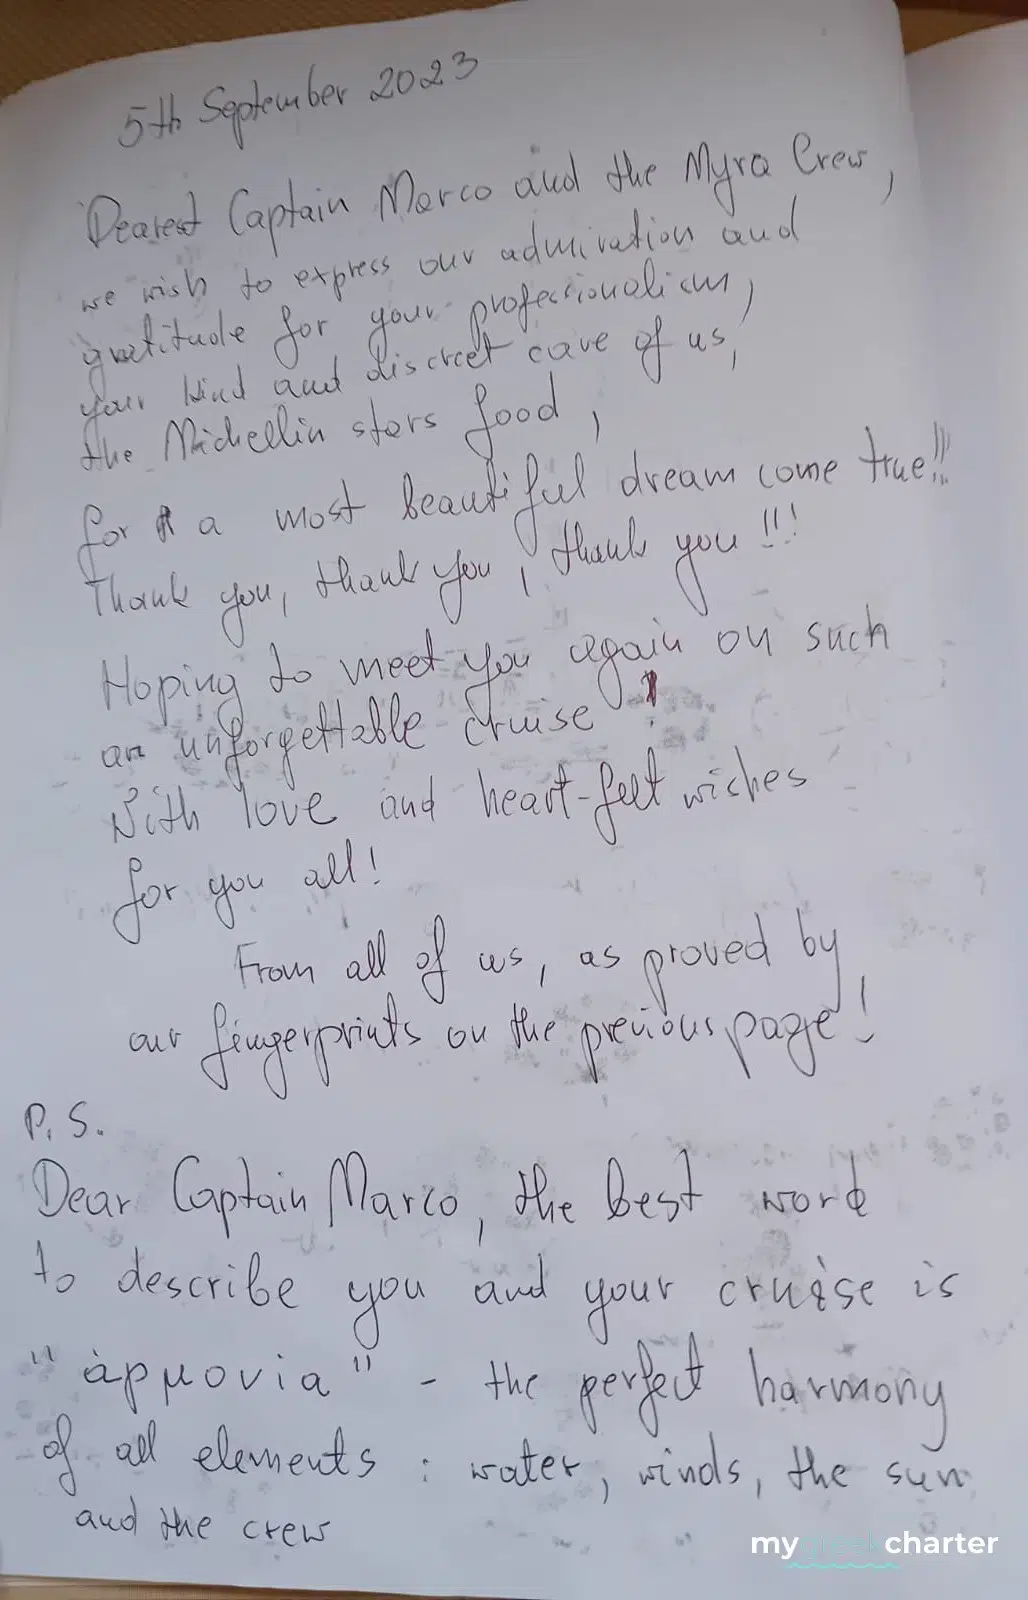 5th September 2023
Dearest Captain Marco and the Myra Crew,
we wish to express our admiration and
gratitude for your professionalism,
your kind and discreet care of us,
the Michellin stars food,
for a most beautiful dream come true!!!
Thank you, thank you, thank you!!!
Hoping to meet you again on such
an unforgettable cruise!
With love and heart-felt wishes
for you all!
From all of us, as proved by
our fingerprints on the previous page!
P.S.
Dear Captain Marco, the best word
to describe you and your cruise is
"άρμονία" - the perfect harmony
of all elements: water, winds, the sun
and the crew
mygreekcharter